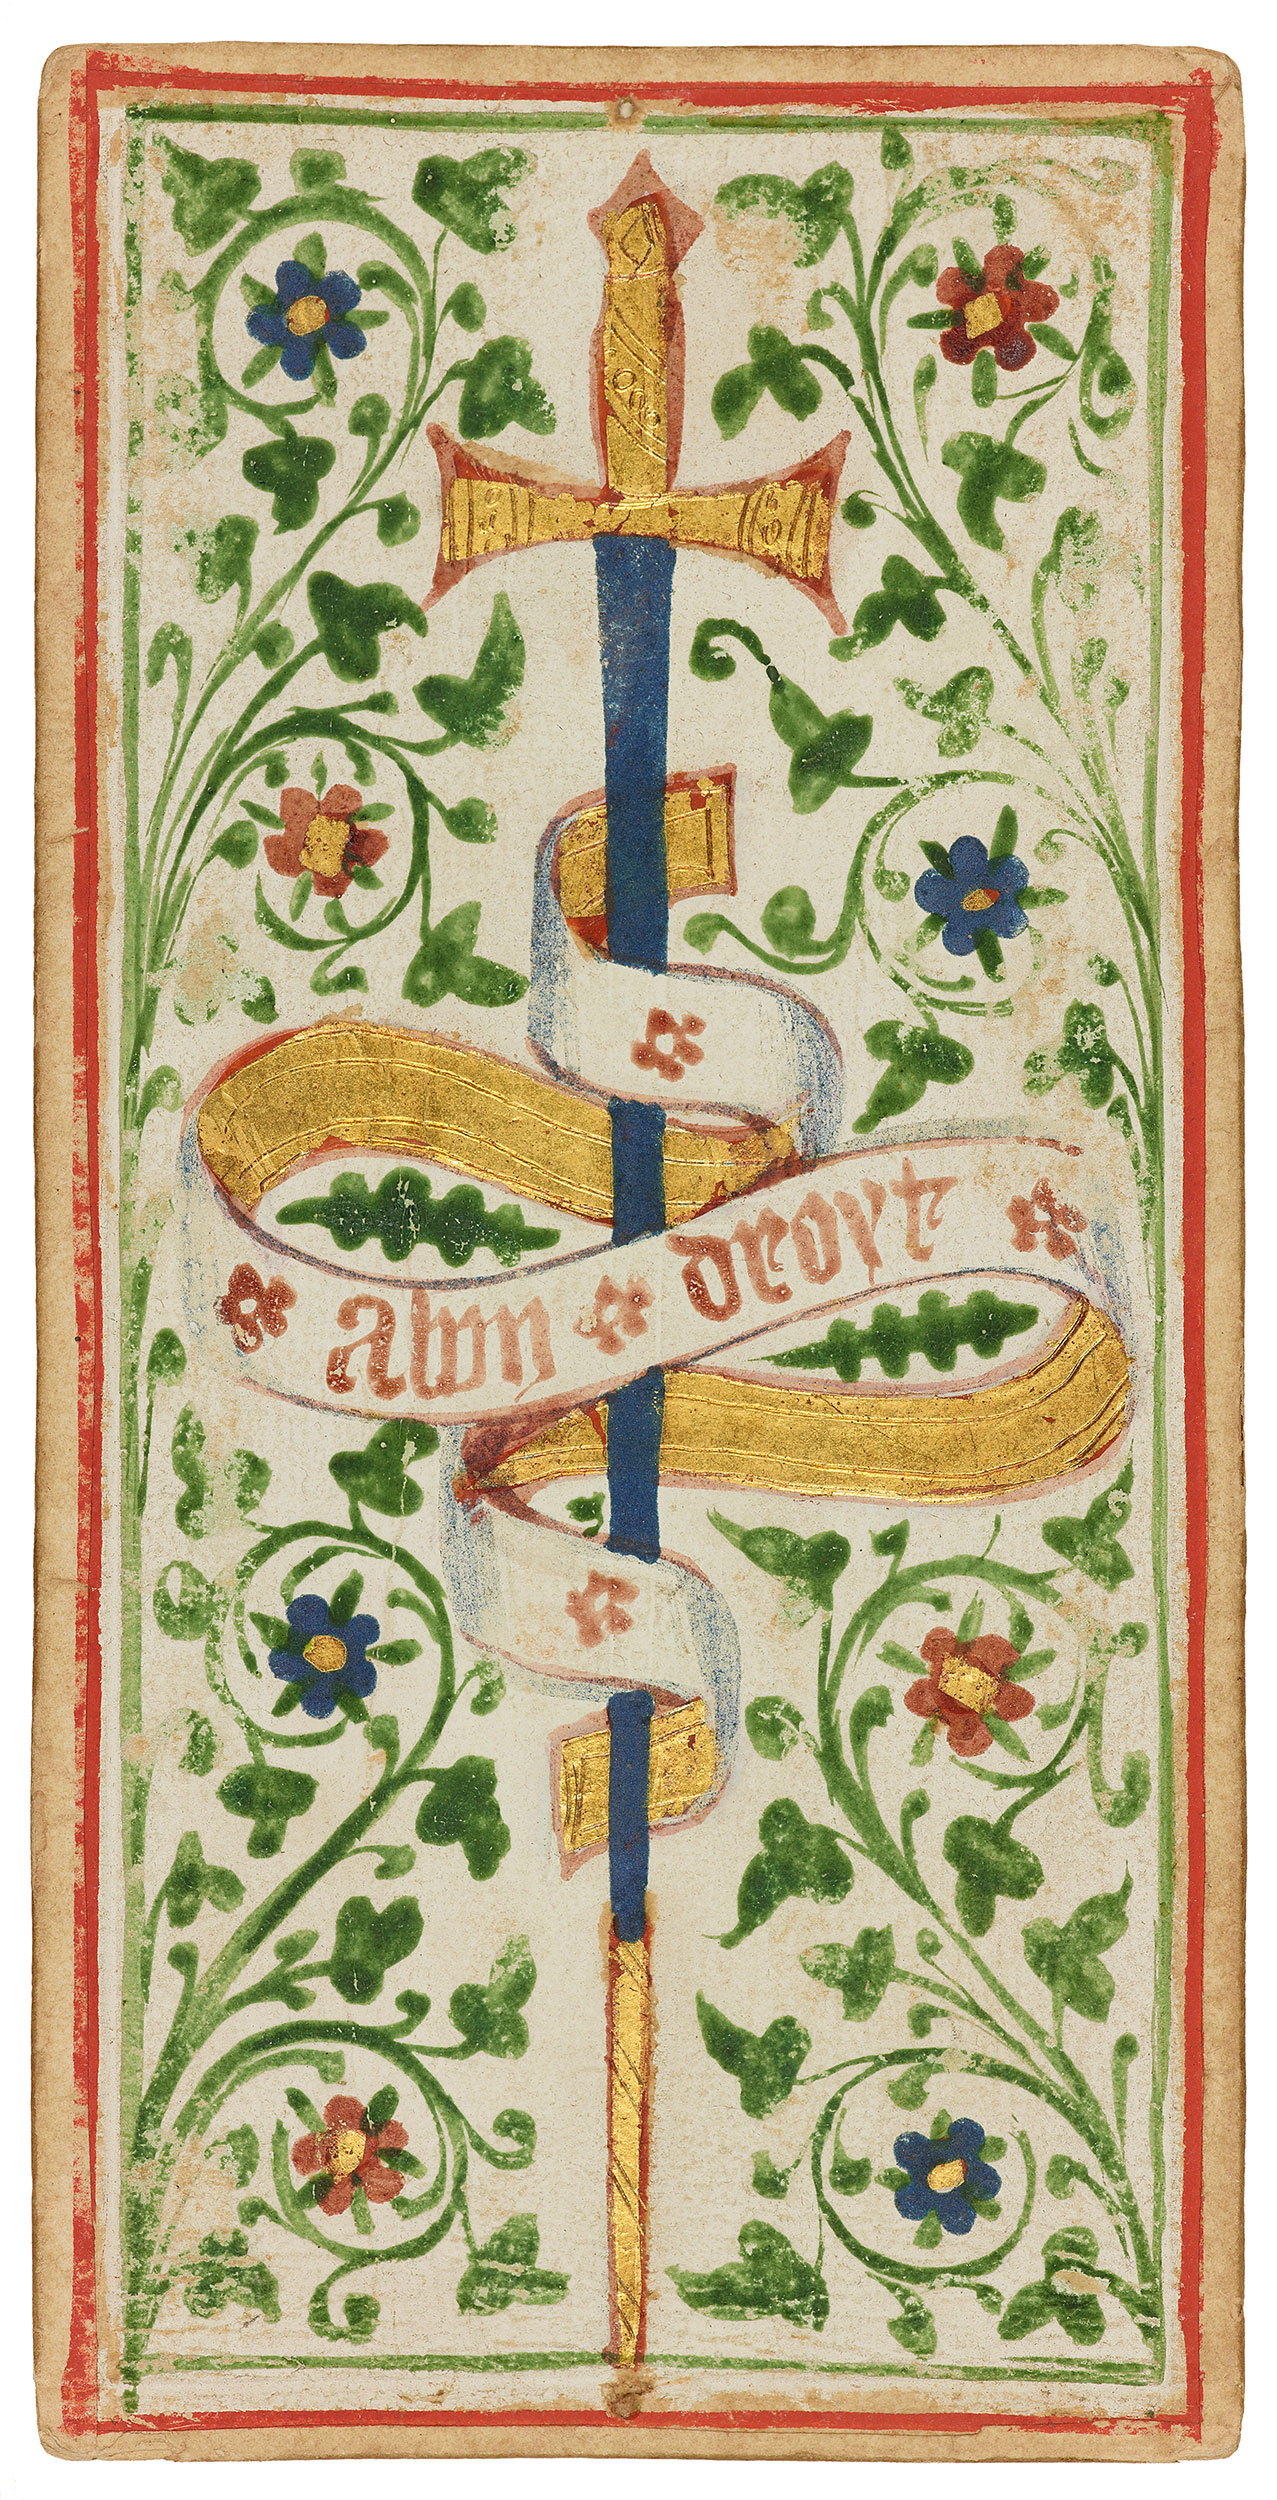 abon droyt